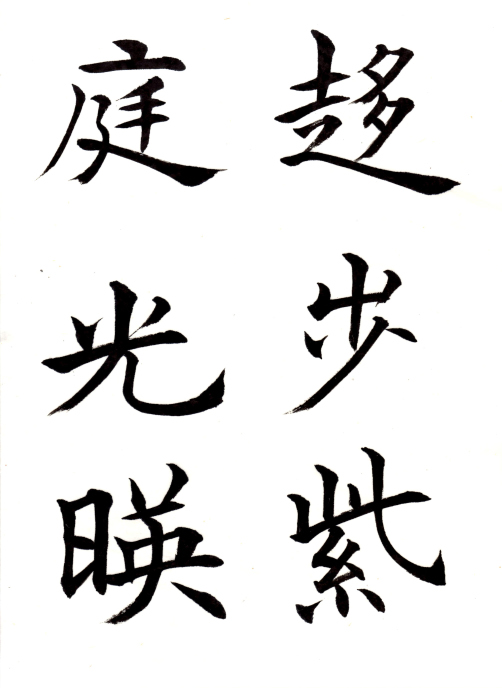 趍步紫
庭光暎